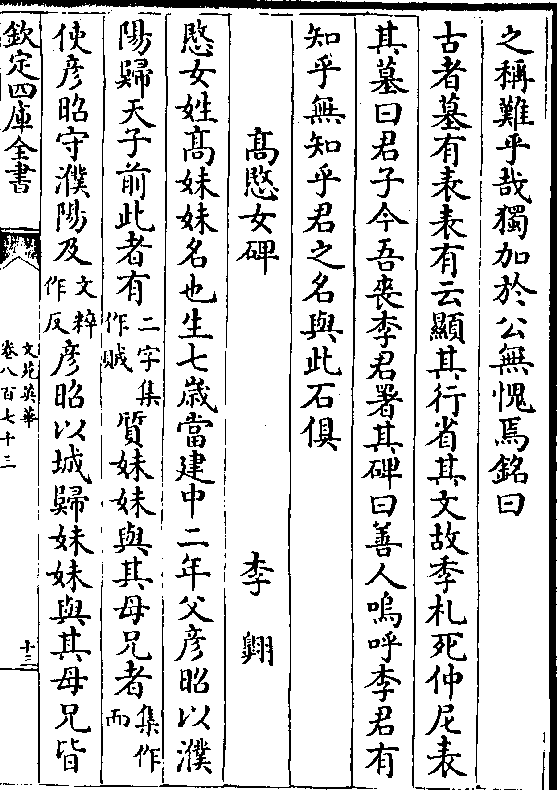 之稱難乎哉獨加於公無愧焉銘曰
古者墓有表表有云顯其行省其文故季札死仲尼表
其墓曰君子今吾喪李君署其碑曰善人嗚呼李君有
知乎無知乎君之名與此石俱
髙愍女碑　李翺
愍女姓髙妹妹名也生七歳當建中二年父彦昭以濮
陽歸天子前此者有二字集作賊質妹妹與其母兄者集作而
使彦昭守濮陽及文粹作反彦昭以城歸妹妹與其母兄皆
欽定四庫全書
文苑英華
卷八百七十三
十三